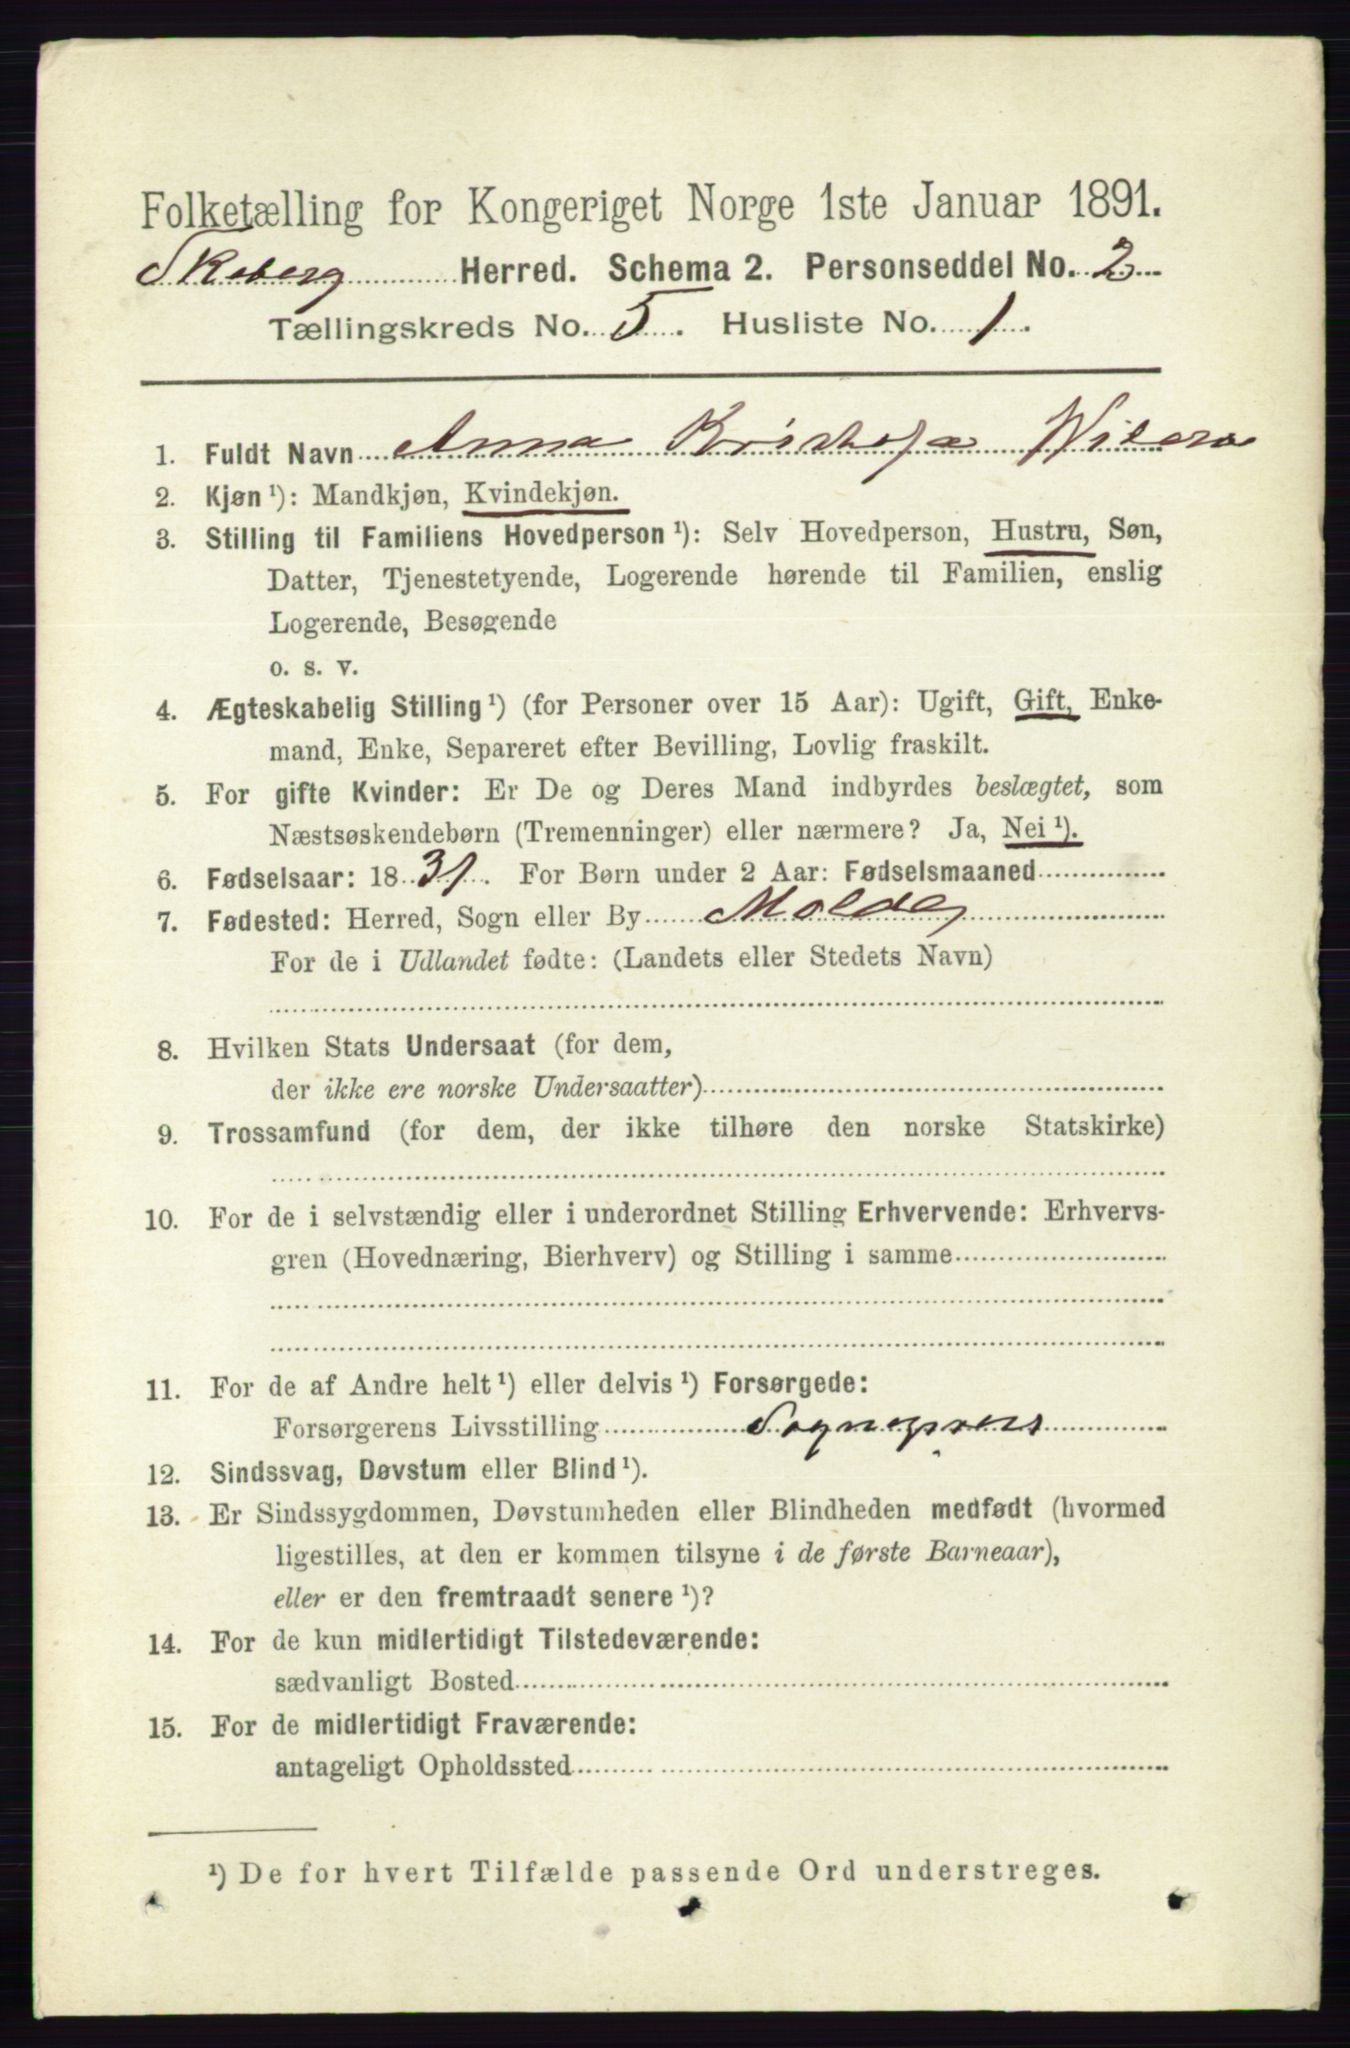 Folketælling for Kongeriget Norge 1ste Januar 1891.
Skeberg Herred. Schema 2. Personseddel No. 2
Tællingskreds No. 5. Husliste No. 1.
1. Fuldt Navn Anna
2. Kjøn ¹): Mandkjøn, Kvindekjøn.
3. Stilling til Familiens Hovedperson ¹): Selv Hovedperson, Hustru, Søn,
Datter, Tjenestetyende, Logerende hørende til Familien, enslig
Logerende, Besøgende
o. s. v.
4. Ægteskabelig Stilling ¹) (for Personer over 15 Aar): Ugift, Gift, Enke-
mand, Enke, Separeret efter Bevilling, Lovlig fraskilt.
5. For gifte Kvinder: Er De og Deres Mand indbyrdes beslægtet, som
Næstsøskendebørn (Tremenninger) eller nærmere? Ja, Nei ¹).
6. Fødselsaar: 1831. For Børn under 2 Aar: Fødselsmaaned
7. Fødested: Herred, Sogn eller By Molde
For de i Udlandet fødte: (Landets eller Stedets Navn)
8. Hvilken Stats Undersaat (for dem,
der ikke ere norske Undersaatter)
9. Trossamfund (for dem, der ikke tilhøre den norske Statskirke)
10. For de i selvstændig eller i underordnet Stilling Erhvervende: Erhvervs-
gren (Hovednæring, Bierhverv) og Stilling i samme
11. For de af Andre helt ¹) eller delvis ¹) Forsørgede:
Forsørgerens Livsstilling Sogneprest
12. Sindssvag, Døvstum eller Blind ¹).
13. Er Sindssygdommen, Døvstumheden eller Blindheden medfødt (hvormed
ligestilles, at den er kommen tilsyne i de første Barneaar),
eller er den fremtraadt senere ¹)?
14. For de kun midlertidigt Tilstedeværende:
sædvanligt Bosted
15. For de midlertidigt Fraværende:
antageligt Opholdssted
¹) De for hvert Tilfælde passende Ord understreges.